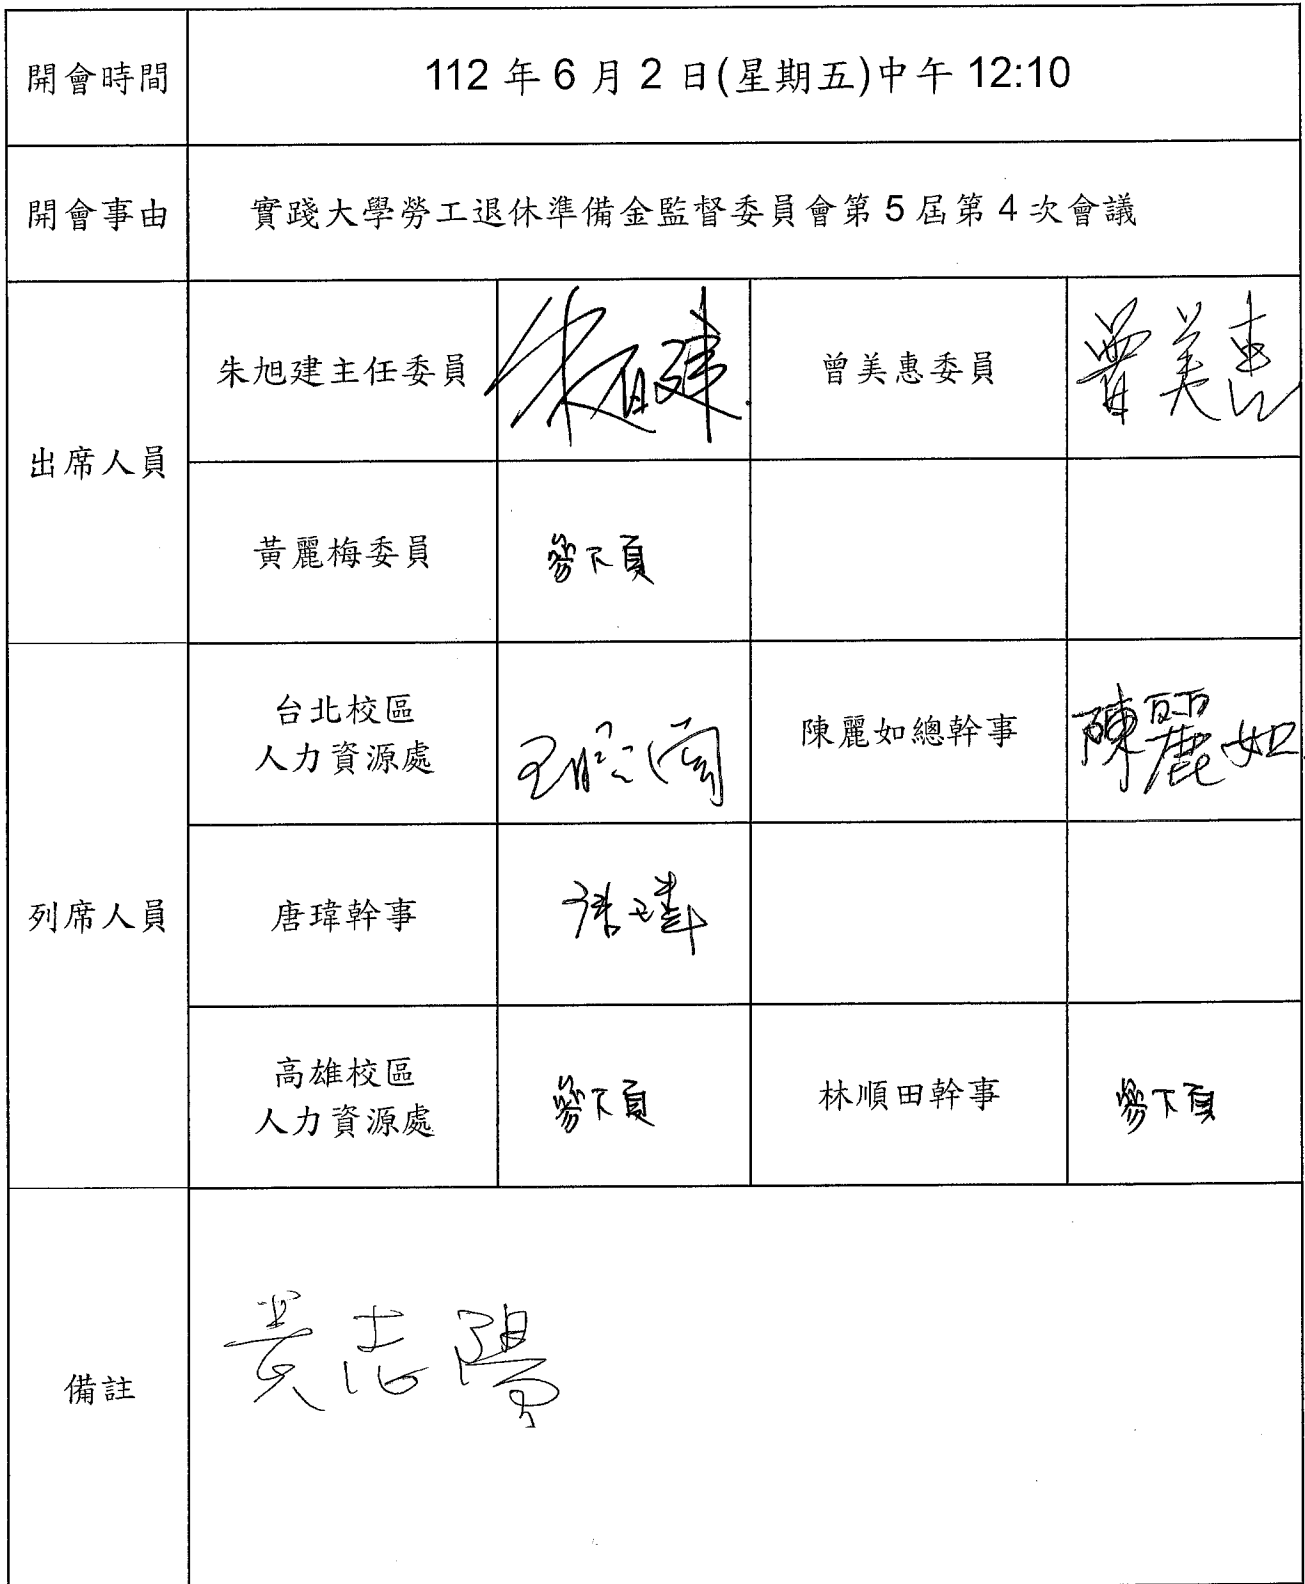 開會時間
112 年 6 月 2 日(星期五)中午 12:10
開會事由
實踐大學勞工退休準備金監督委員會第 5 屆第 4 次會議
出席人員
朱旭建主任委員
朱旭建
曾美惠委員
曾美惠
黃麗梅委員
參下頁
列席人員
台北校區
人力資源處
陳麗如總幹事
陳麗如
唐瑋幹事
唐瑋
高雄校區
人力資源處
參下頁
林順田幹事
參下頁
備註
黃志陽